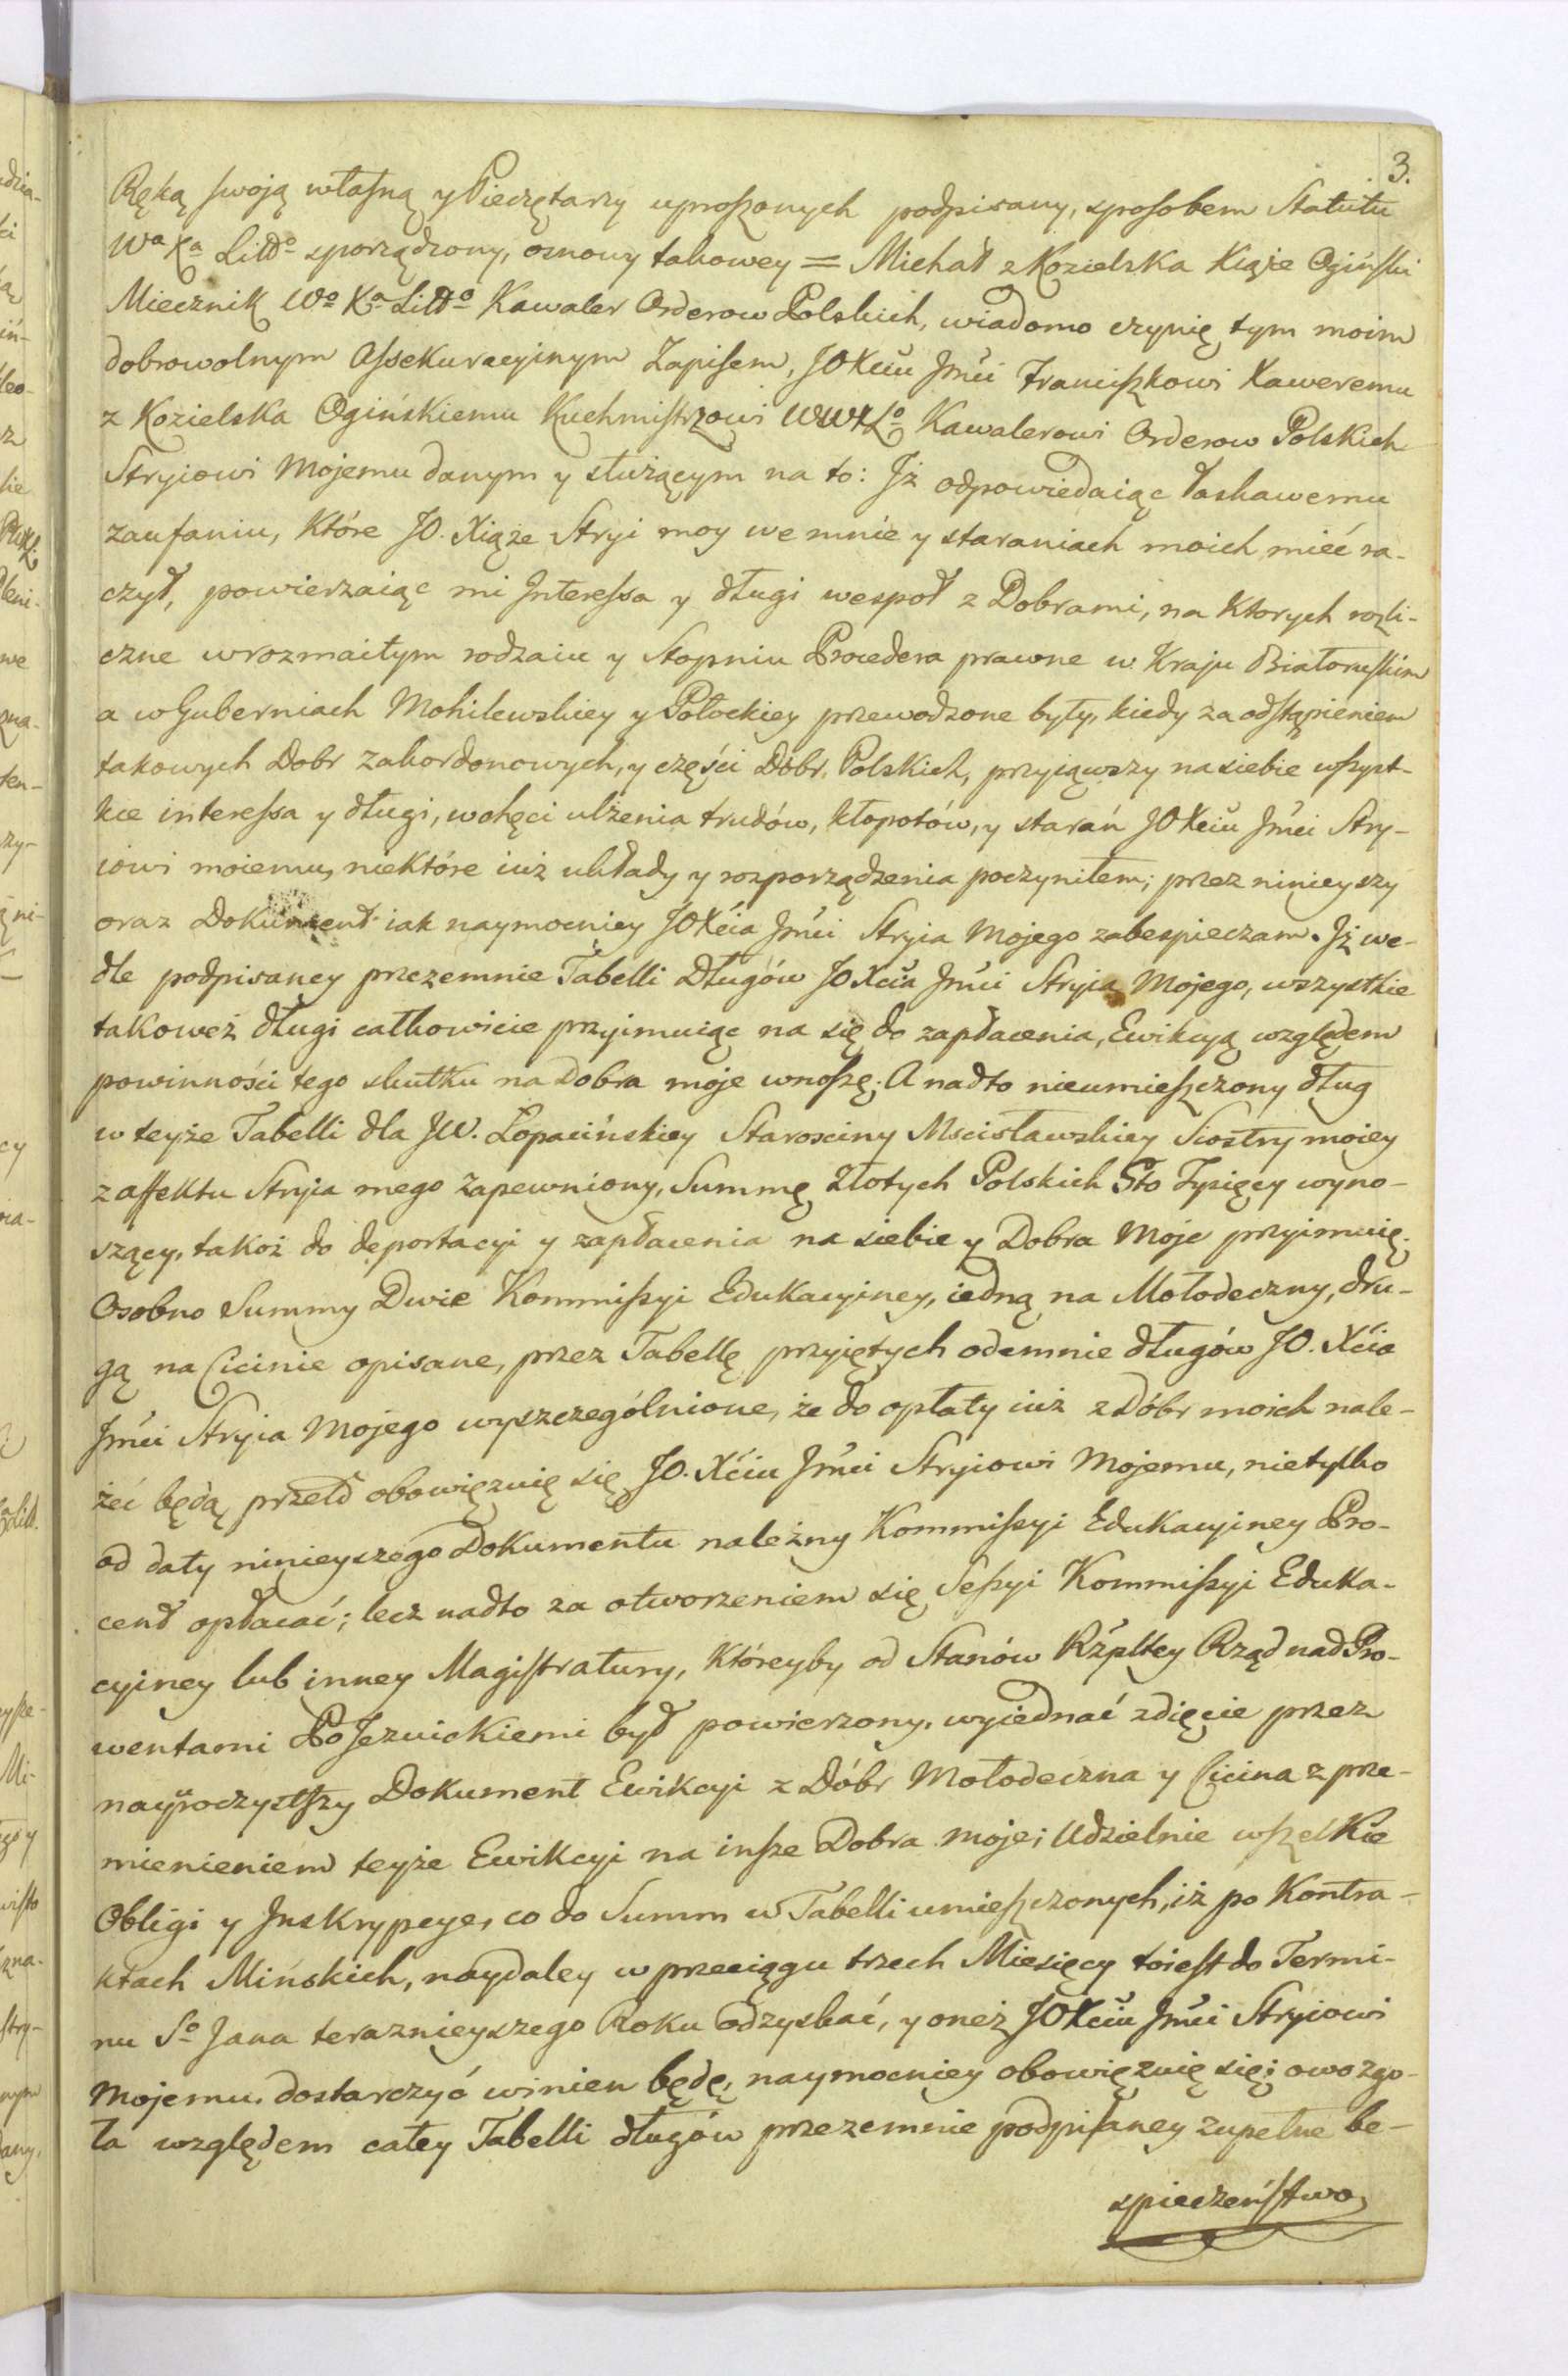 3.
Ręką swoją własną y Pieczętarzy uproszonych podpisany, sposobem Statutu
Wa Xa Litto sporządzony, osnowy takowey = Michał z Kozielska Xiąże Ogiński
Miecznik Wo Xa Litto Kawaler Orderow Polskich, wiadomo czynię tym moim
dobrowolnym Assekuracyinym Zapisem, JO Xciu Jmći Franciszkowi Xaweremu
z Kozielska Ogińskiemu Kuchmistrzowi WWXLo Kawalerowi Orderow Polskich
Stryiowi Mojemu danym y służącym na to: Jż odpowiedaiąc łaskawemu
zaufaniu, które JO. Xiąże Stryi moy we mnie y staraniach moich mieć ra-
czył, powierzaiąc mi Interessa y długi wespoł z Dobrami, na ktorych rozli-
czne w rozmaitym rodzaiu y Stopniu Procedera prawne w Kraju Białoruskim
a w Guberniach Mohilewskiey y Połockiey przewodzone były, kiedy za odstąpieniem
takowych Dobr zakordonowych, y części Dóbr Polskich, przyiąwszy na siebie wszyst-
kie interessa y długi, w chęci ulżenia trudów, kłopotów, y starań JO Xciu Jmći Stry-
iowi moiemu, niektóre iuż układy y rozporządzenia poczyniłem; przez ninieyszy
oraz Dokument iak naymocniey JO Xcia Jmći Stryia Mojego zabespieczam. Jż we-
dle podpisaney przezemnie Tabelli Długów JO Xcia Jmći Stryia Mojego, wszystkie
takoweż długi całkowicie przyimuiąc na się do zapłacenia, Ewikcyą względem
powinności tego skutku na Dobra moje wnoszę. A nadto nieumieszczony dług
w teyże Tabelli dla JW. Łopacińskiey Starosciny Mscisławskiey Siostry moiey
z affektu Stryia mego zapewniony, Summę Złotych Polskich Sto Tysięcy wyno-
szący, takoż do deportacyi y zapłacenia na siebie y Dobra Moje przyimuię.
Osobno Summy Dwie Kommissyi Edukacyiney, iedną na Mołodeczny, dru-
gą na Cicinie opisane, przez Tabellę przyiętych odemnie długów JO. Xcia
Jmći Stryia Mojego wyszczególnione, że do opłaty iuż z Dóbr moich nale-
żeć będą przeto obowięzuię się JO. Xciu Jmći Stryiowi Mojemu, nietylko
od daty ninieyszego Dokumentu należny Kommissyi Edukacyiney Pro-
cent opłacać; lecz nadto za otworzeniem się Sessyi Kommissyi Eduka-
cyiney lub inney Magistratury, któreyby od Stanów Rzpltey Rząd nad Pro-
wentami Po Jezuickiemi był powierzony, wyiednać zdięcie przez
nayuroczystszy Dokument Ewikcyi z Dóbr Mołodeczna y Cicina z prze-
mienieniem teyże Ewikcyi na insze Dobra moje; Udzielnie wszelkie
Obligi y Jnskrypcye, co do Summ w Tabelli umieszczonych, iż po Kontra-
ktach Mińskich, naydaley w przeciągu trzech Miesięcy toiest do Termi-
nu So Jana teraznieyszego Roku odzyskać, y oneż JO Xciu Jmći Stryiowi
Mojemu dostarczyć winien będę, naymocniey obowięzuię się; owo zgo-
ła względem całey Tabelli długów przezemnie podpisaney zupełne be-
spieczeństwo